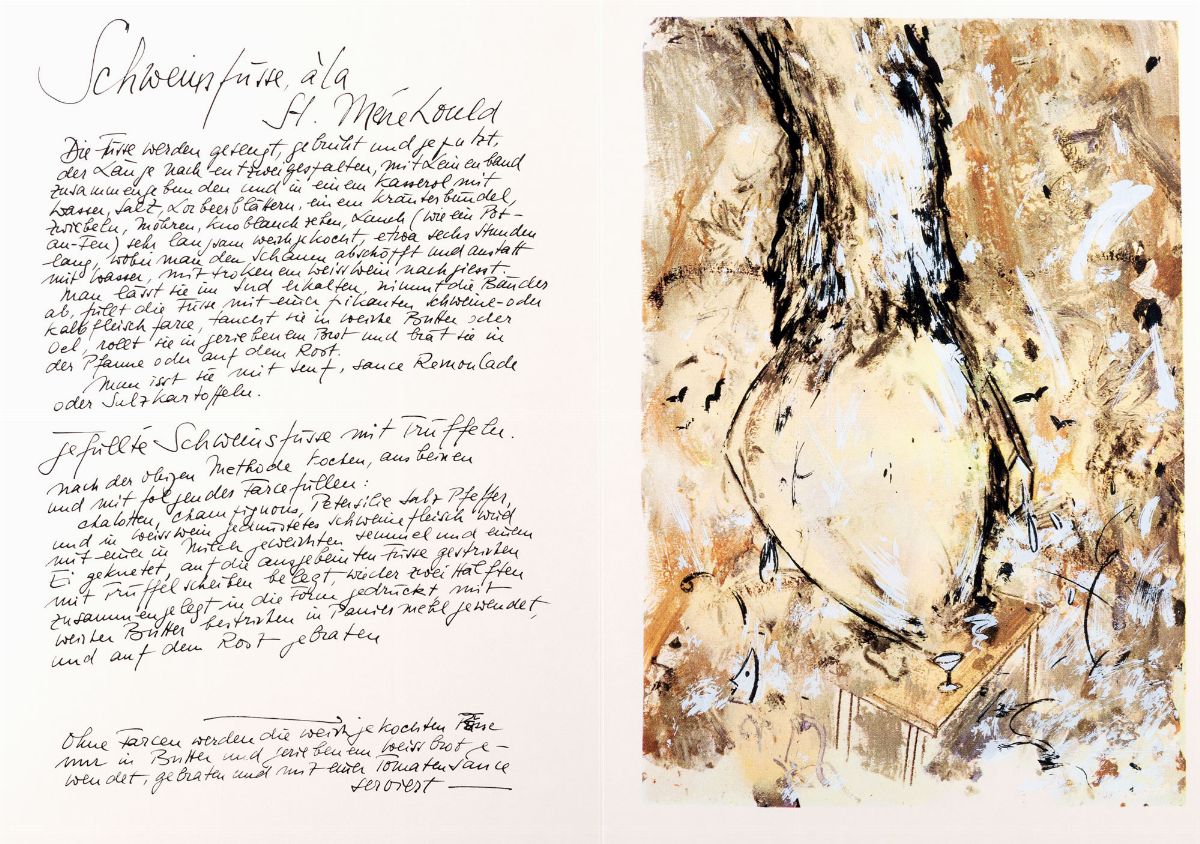 Schweinsfüsse, à la
St. Ménehould
Die Füsse werden gesengt, gebrüht und geputzt,
der Länge nach entzweigespalten, mit Leinenband
zusammengebunden und in einem Kasserol mit
Wasser, Salz, Lorbeerblättern, einem Kräuterbündel,
Zwiebeln, Möhren, Knoblauchzehen, Lauch (wie ein Pot-
au-Feu) sehr langsam weichgekocht, etwa sechs Stunden
lang, wobei man den Schaum abschöpft und anstatt
mit Wasser, mit trokenem Weisswein nachgiesst.
Man lässt sie im Sud erkalten, nimmt die Bänder
ab, füllt die Füsse mit einer pikanten Schweine- oder
Kalbfleischfarce, taucht sie in weiche Butter oder
Oel, rollt sie in geriebenem Brot und brät sie in
der Pfanne oder auf dem Rost.
Man isst sie mit Senf, Sauce Remoulade
oder Salzkartoffeln.
Gefüllte Schweinsfüsse mit Trüffeln.
nach der obigen Methode kochen, ausbeinen
und mit folgender Farce füllen:
Chalotten, Champignons, Petersilie Salz Pfeffer,
und in Weisswein gedünstetes Schweinefleisch wird
mit einer in Milch geweichten Semmel und einem
Ei geknetet, auf die ausgebeinten Füsse gestrichen
mit Trüffelscheiben belegt, wieder zwei Hälften
zusammengelegt in die Form gedrückt mit
weicher Butter bestrichen in Paniermehl gewendet,
und auf dem Rost gebraten
Ohne Farcen werden die weichgekochten Füsse
nur in Butter und geriebenem Weissbrot ge-
wendet, gebraten und mit einer Tomatensauce
serviert